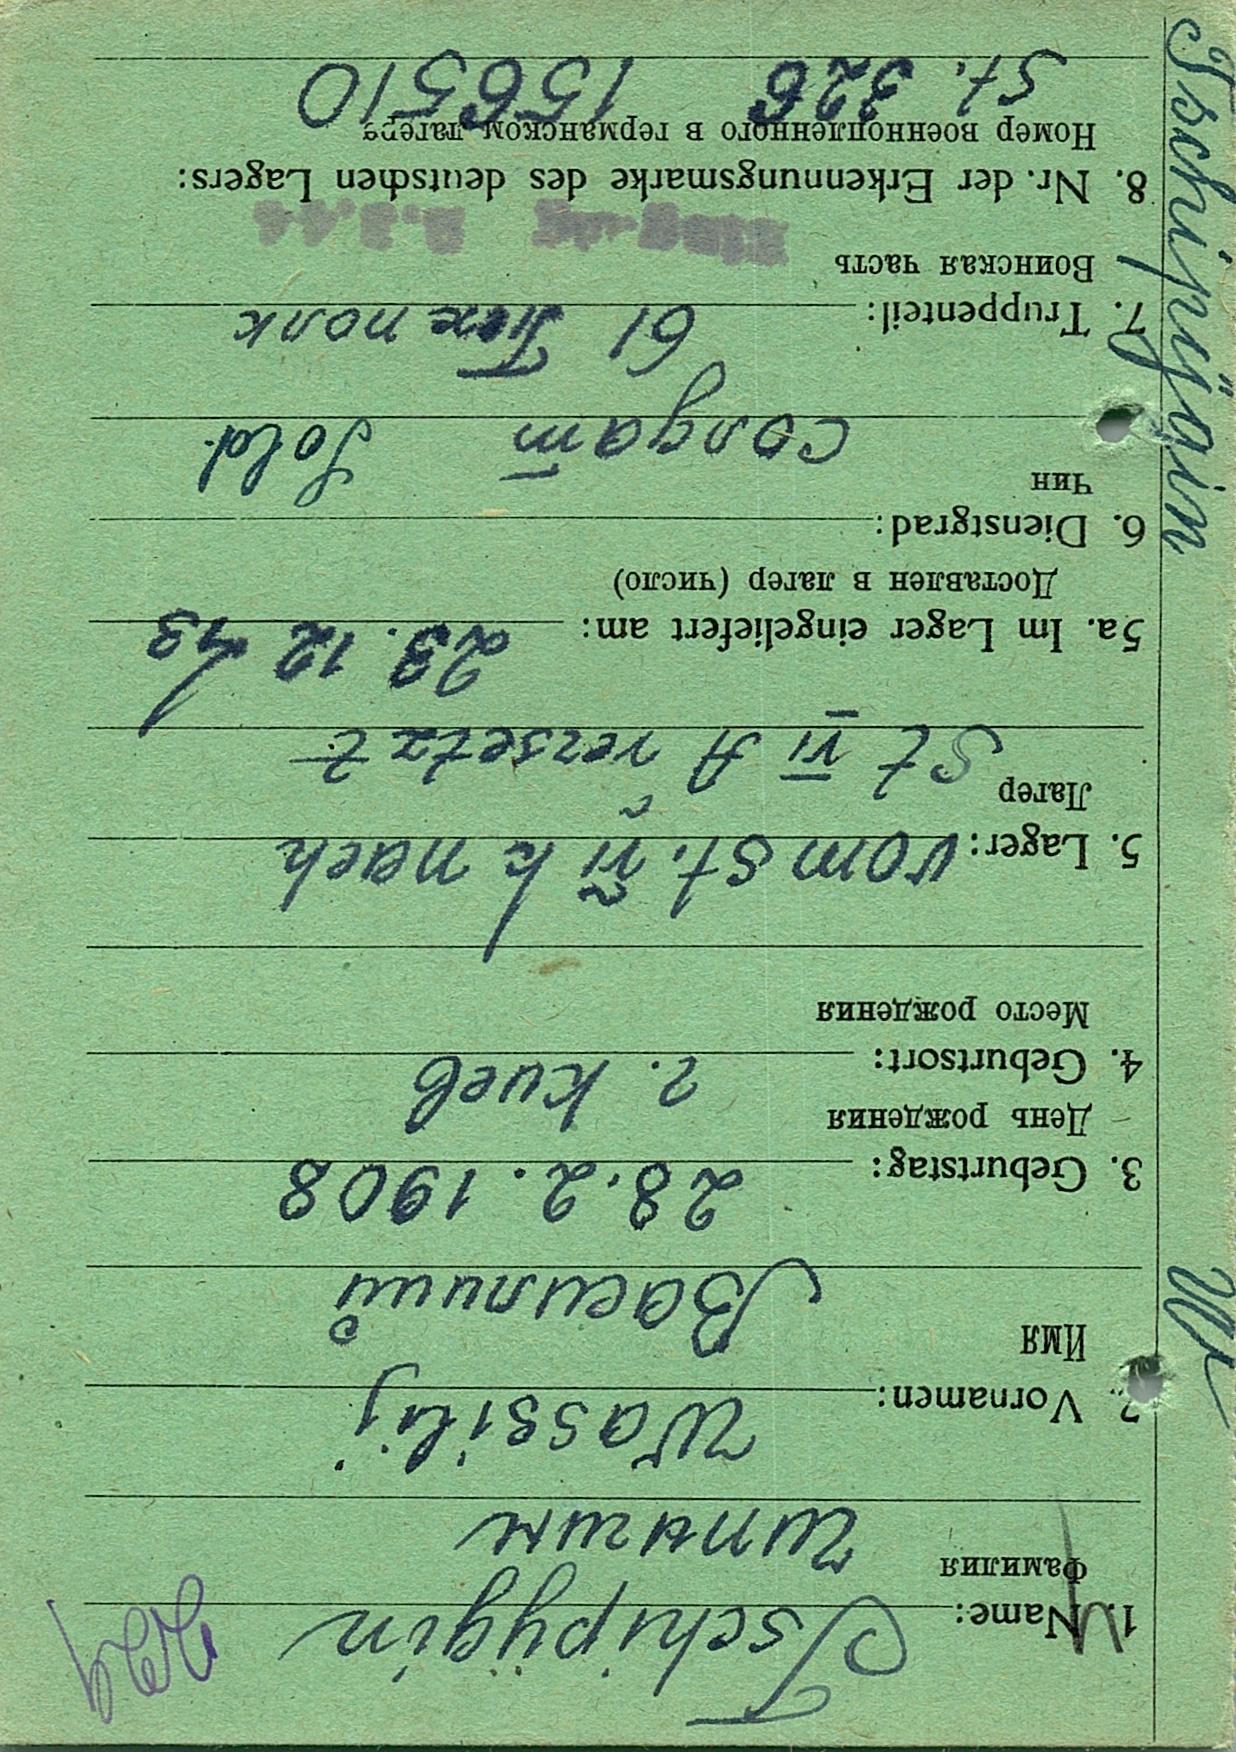 Tschipygin
1. Name:
Фамилия
Чипыгин
Wassilij
2. Vornamen:
Имя
Василий
28.2.1908
3. Geburtstag:
День рождения
г. Киев
4. Geburtsort:
Место рождения
5. Lager: vom St. VI K nach
Лагер
St VI A versetzt
5a. Im Lager eingeliefert am: 23.12.43
Доставлен в лагер (число)
6. Dienstgrad:
Чин
солдат Sold.
7. Truppenteil: 61 полк
Воинская часть
8. Nr. der Erkennungsmarke des deutschen Lagers:
Номер военнопленного в германском лагере
St. 326 156510
Tschipygin